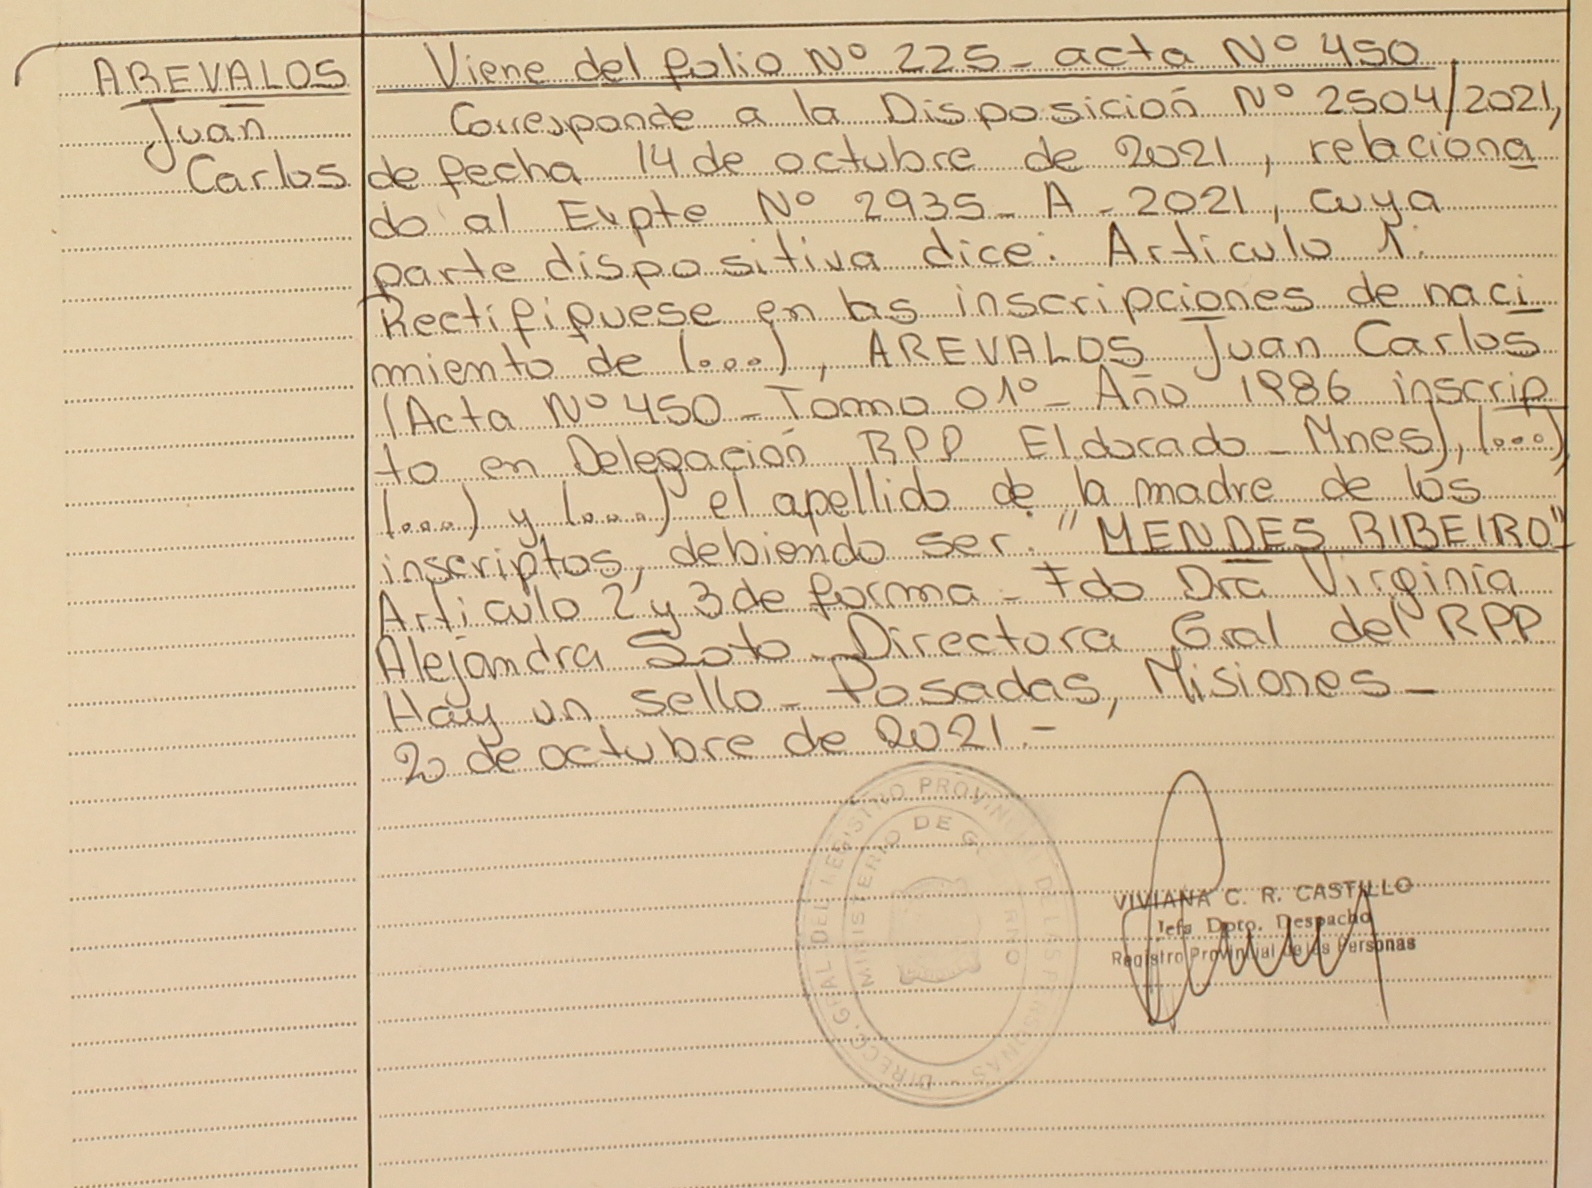 AREVALOS
Juan
Carlos
Viene del folio Nº 225 - acta Nº 450
Corresponde a la Disposición Nº 2504/2021,
de fecha 14 de octubre de 2021, relaciona
do al Expte Nº 2935 - A - 2021, cuya
parte dispositiva dice: Articulo 1:
Rectifiquese en las inscripciones de naci
miento de (...), AREVALOS Juan Carlos
(Acta Nº 450 - Tomo 01º - Año 1986 inscrip
to en Delegación RPP Eldorado - Mnes), (...)
(...) y (...) el apellido de la madre de los
inscriptos, debiendo ser: "MENDES RIBEIRO"
Articulo 2 y 3 de forma - Fdo Dra Virginia
Alejandra Soto - Directora Gral del RPP
Hay un sello - Posadas, Misiones -
20 de octubre de 2021.-
DIRECC. GRAL DEL REGISTRO PROVINCIAL DE LAS PERSONAS
MINISTERIO DE GOBIERNO
VIVIANA C. R. CASTILLO
Jefa Dpto. Despacho
Registro Provincial de las Personas